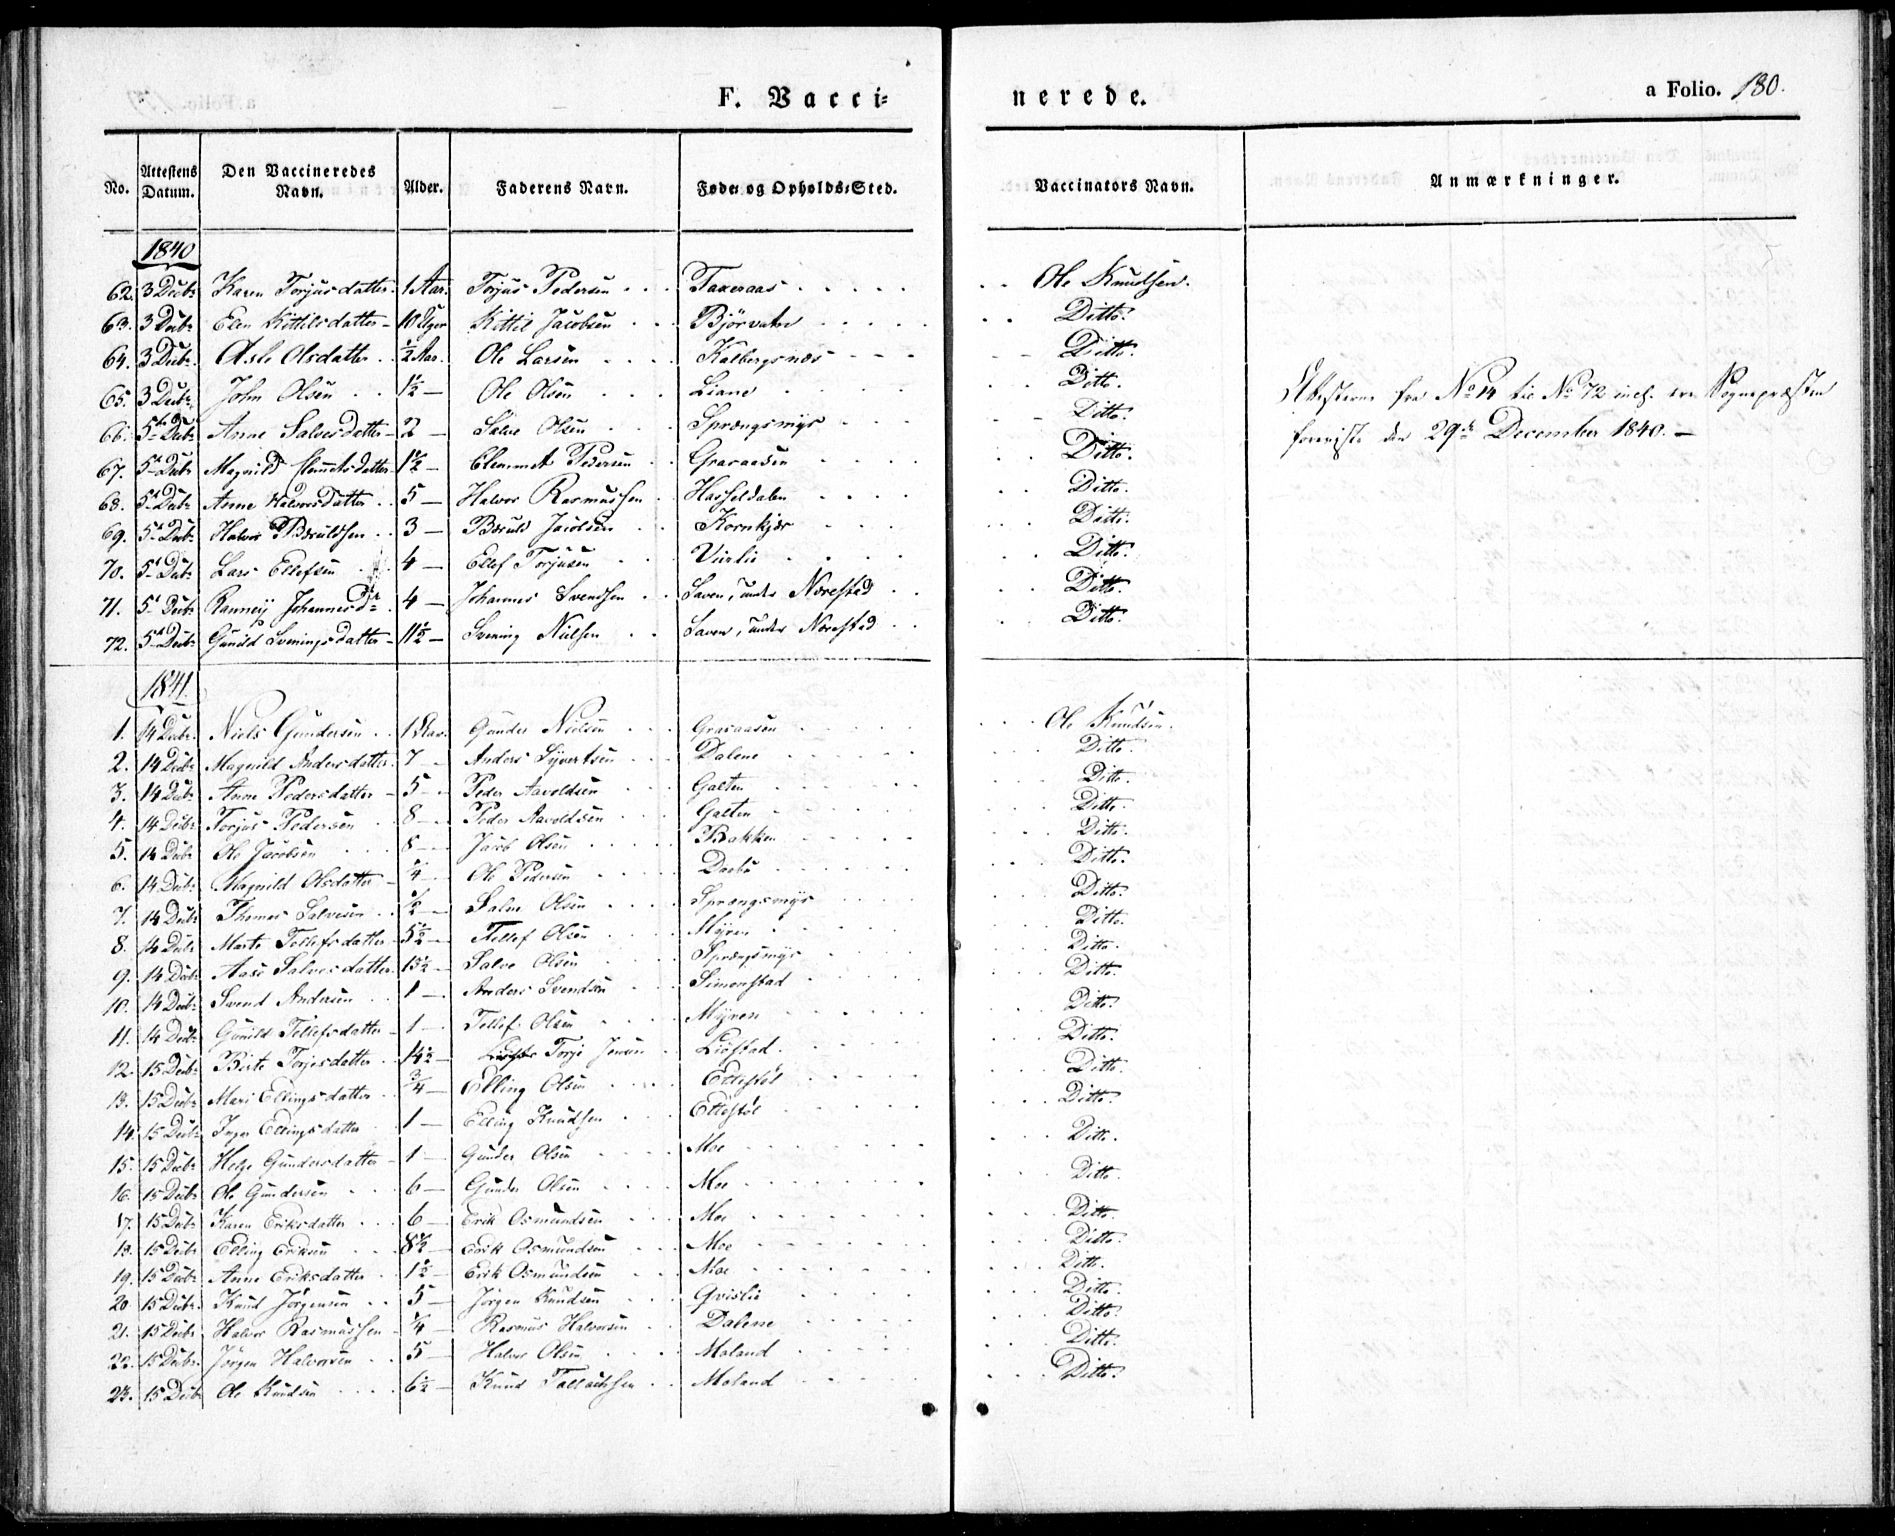 F. Vacci=
nerede.
a Folio. 180.
No. Attestens Datum. Den Vaccineredes Navn. Alder. Faderens Navn. Føde= og Opholds=Sted. Vaccinators Navn. Anmærkninger.
1840
62. 3 Decbr Karen Torjusdatter 1 Aar. Torjus Pedersen Taxeraas Ole Knudsen.
63. 3 Decbr Elen Kittilsdatter 10 Uger Kittil Jacobsen Björvatn Ditto.
64. 3 Decbr Asle Olsdatter ½ Aar. Ole Larsen Kalbergsnæs Ditto.
65. 3 Decbr John Olsen 1½ Ole Olsen Liane Ditto.
Attesterne fra No 14 til No 72 incl. ere Sognepræsten
66. 5 Decbr Anne Salvesdatter 2 Salve Olsen Sprængsmyr Ditto.
foreviste den 29de December 1840.
67. 5 Decbr Magnild Clemetsdatter 1½ Clemmet Pedersen Gravaasen Ditto.
68. 5 Decbr Anne Halvorsdatter 5 Halvor Rasmussen Hasseldalen Ditto.
69. 5 Decbr Halvor Bæruldsen 3 Bæruld Jacobsen Kornkjær Ditto.
70. 5 Decbr Lars Ellefsen 4 Ellef Torjusen Ditto.
71. 5 Decbr Ranneij Johannesdr 4 Johannes Svendsen Saven, under Norestad Ditto.
72. 5 Decbr Gunild Sveningsdatter 11½ Svening Nielsen Saven, under Norestad Ditto.
1841.
1. 14 Decbr Niels Gundersen 1 Aar. Gunder Nielsen Gravaasen Ole Knudsen.
2. 14 Decbr Magnild Andersdatter 7 Anders Syvertsen Dalene Ditto.
3. 14 Decbr Anne Pedersdatter 5 Peder Aavoldsen Galten Ditto.
4. 14 Decbr Torjus Pedersen 8 Peder Aavoldsen Galten Ditto.
5. 14 Decbr Ole Jacobsen 8 Jacob Olsen Bakken Ditto.
6. 14 Decbr Magnild Olsdatter ¼ Ole Pedersen Ditto.
7. 14 Decbr Thomas Salvesen ½ Salve Olsen Sprængsmyr Ditto.
8. 14 Decbr Marte Tellefsdatter 5½ Tellef Olsen Myren Ditto.
9. 14 Decbr Aase Salvesdatter 15½ Salve Olsen Sprængsmyr Ditto.
10. 14 Decbr Svend Andersen 1 Anders Svendsen Simonstad Ditto.
11. 14 Decbr Gunild Tellefsdatter 1 Tellef Olsen Myren Ditto.
12. 15 Decbr Birte Torjesdatter 14½ Torje Jensen Liöstad. Ditto.
13. 15 Decbr Mari Ellingsdatter ¾ Elling Olsen Ettestöl Ditto.
14. 15 Decbr Inger Ellingsdatter 1 Elling Knudsen Ettestöl Ditto.
15. 15 Decbr Helje Gundersdatter 1 Gunder Olsen Moe Ditto.
16. 15 Decbr Ole Gundersen 6 Gunder Olsen Moe Ditto.
17. 15 Decbr Karen Eriksdatter 6 Erik Osmundsen Moe Ditto.
18. 15 Decbr Elling Eriksen 8½ Erik Osmundsen Moe Ditto.
19. 15 Decbr Anne Eriksdatter 1½ Erik Osmundsen Moe Ditto.
20. 15 Decbr Knud Jörgensen 5 Jörgen Knudsen Qvislie Ditto.
21. 15 Decbr Halvor Rasmussen ¼ Rasmus Halvorsen Dalene Ditto.
22. 15 Decbr Jörgen Halvorsen 5 Halvor Olsen Moland Ditto.
23. 15 Decbr Ole Knudsen 6½ Knud Tallachsen Moland Ditto.